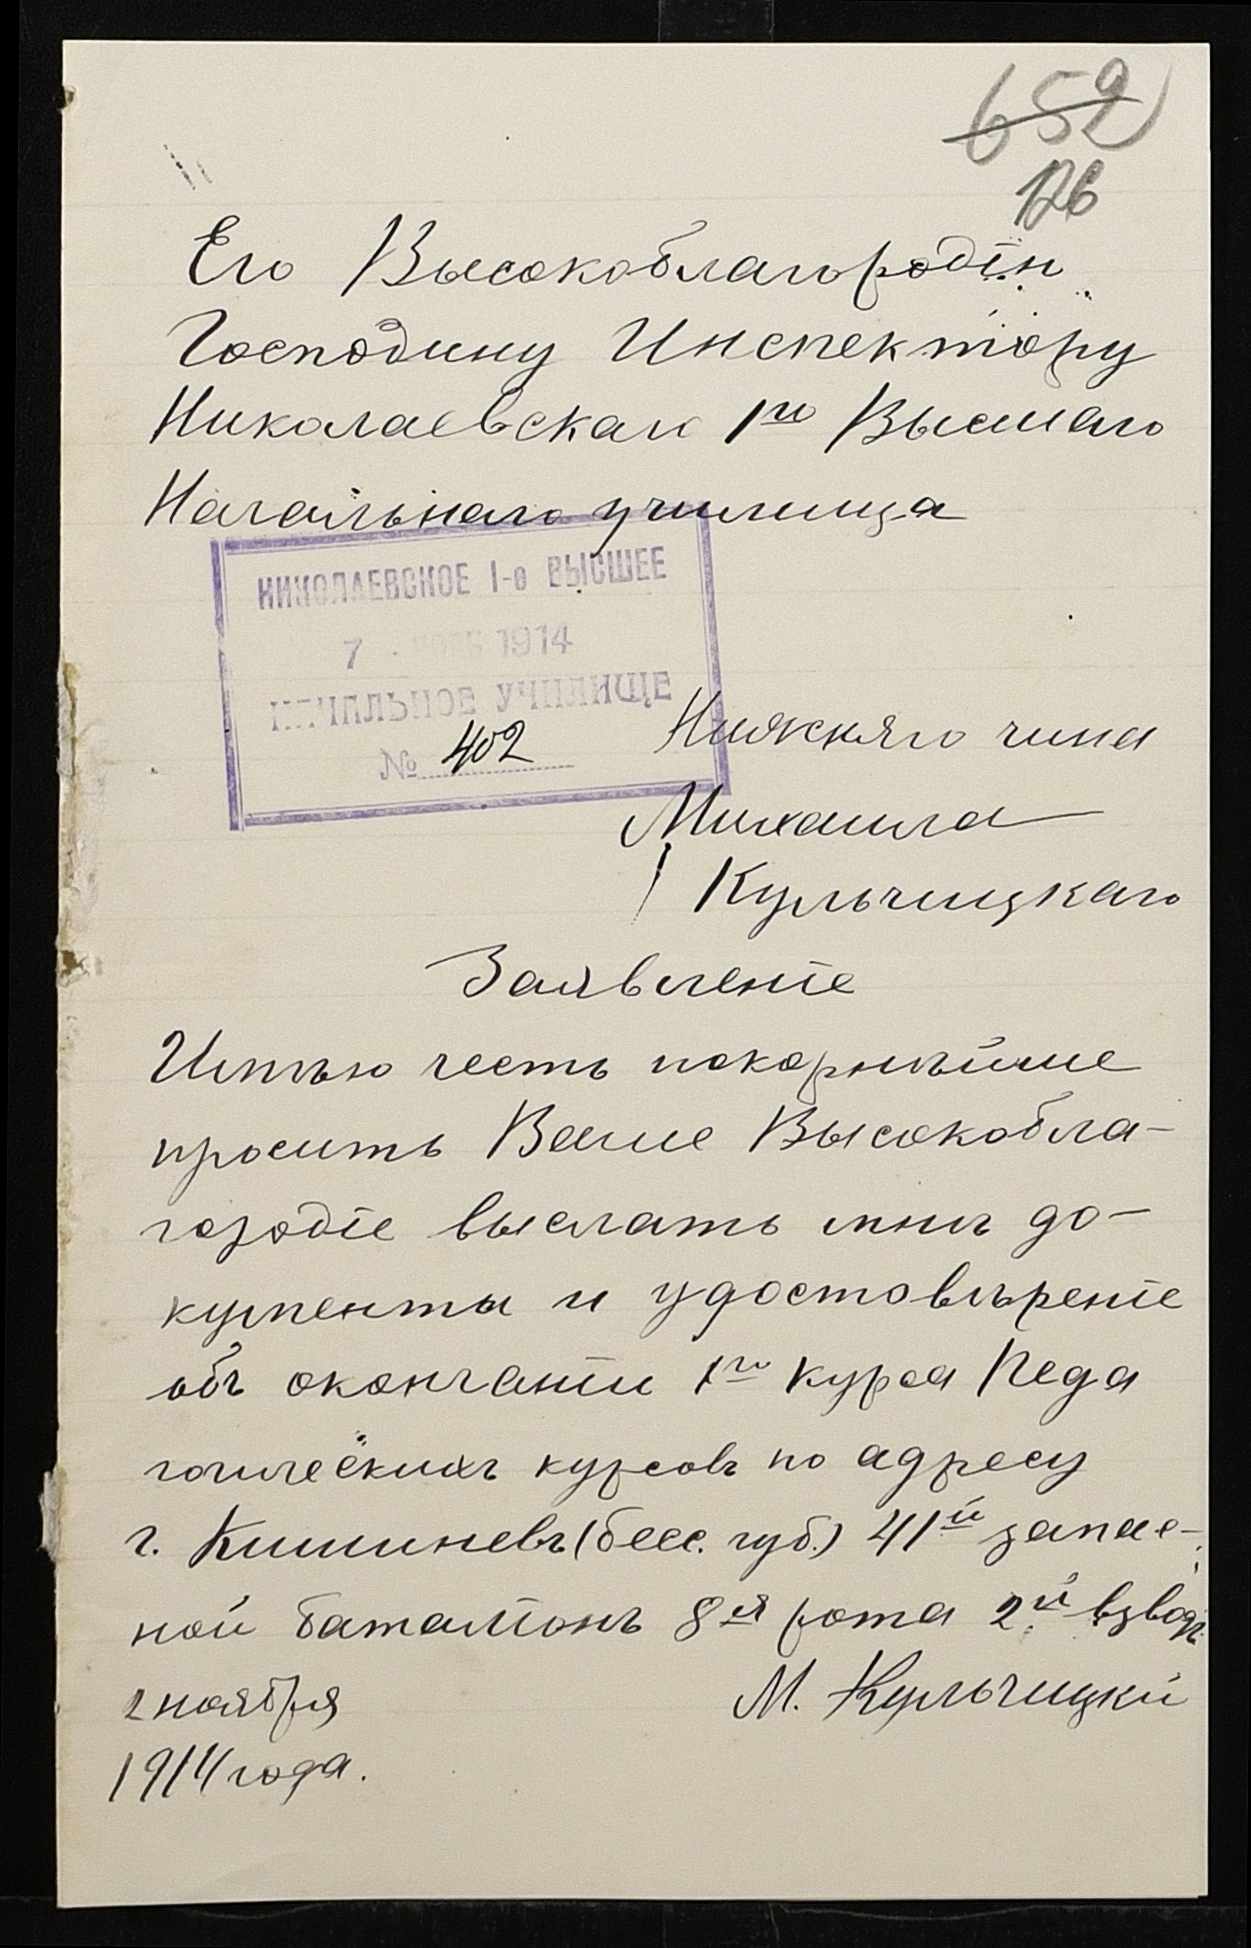 652
126
Его Высокоблагородію
Господину Инспектору
Николаевскаго 1го Высшаго
Начальнаго училища
НИКОЛАЕВСКОЕ 1-е ВЫСШЕЕ
7 НОЯБ 1914
НАЧАЛЬНОЕ УЧИЛИЩЕ
№ 402
Нижняго чина
Михаила
Кульчицкаго
Заявленіе
Имѣю честь покорнѣйше
просить Ваше Высокобла-
городіе выслать мнѣ до-
кументы и удостовѣреніе
объ окончаніи 1го курса Педа
гогическихъ курсовъ по адресу
г. Кишиневъ (бесс. губ.) 41й запас-
ной баталіонъ 8я рота 2й взводъ.
2 ноября
М. Кульчицкій
1914 года.